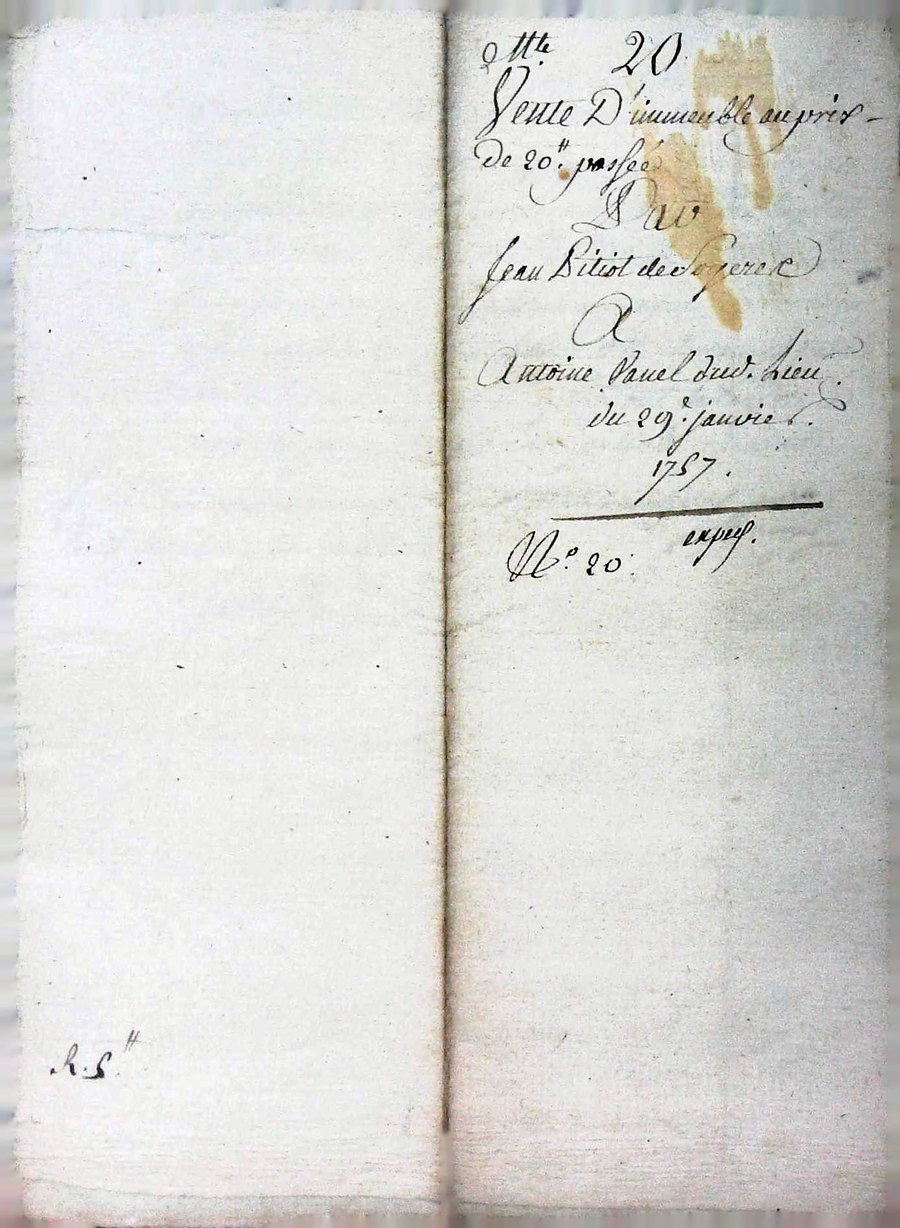 20
Vente D'immeuble au prix
de 20tt. passée
Par
Jean Pitiot de
A
Antoine Panel dud. Lieu.
du 29e. janvier.
1757.
exped.
No. 20.
R. 5tt